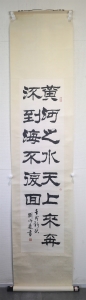 黃河之水天上來奔
流到海不復回